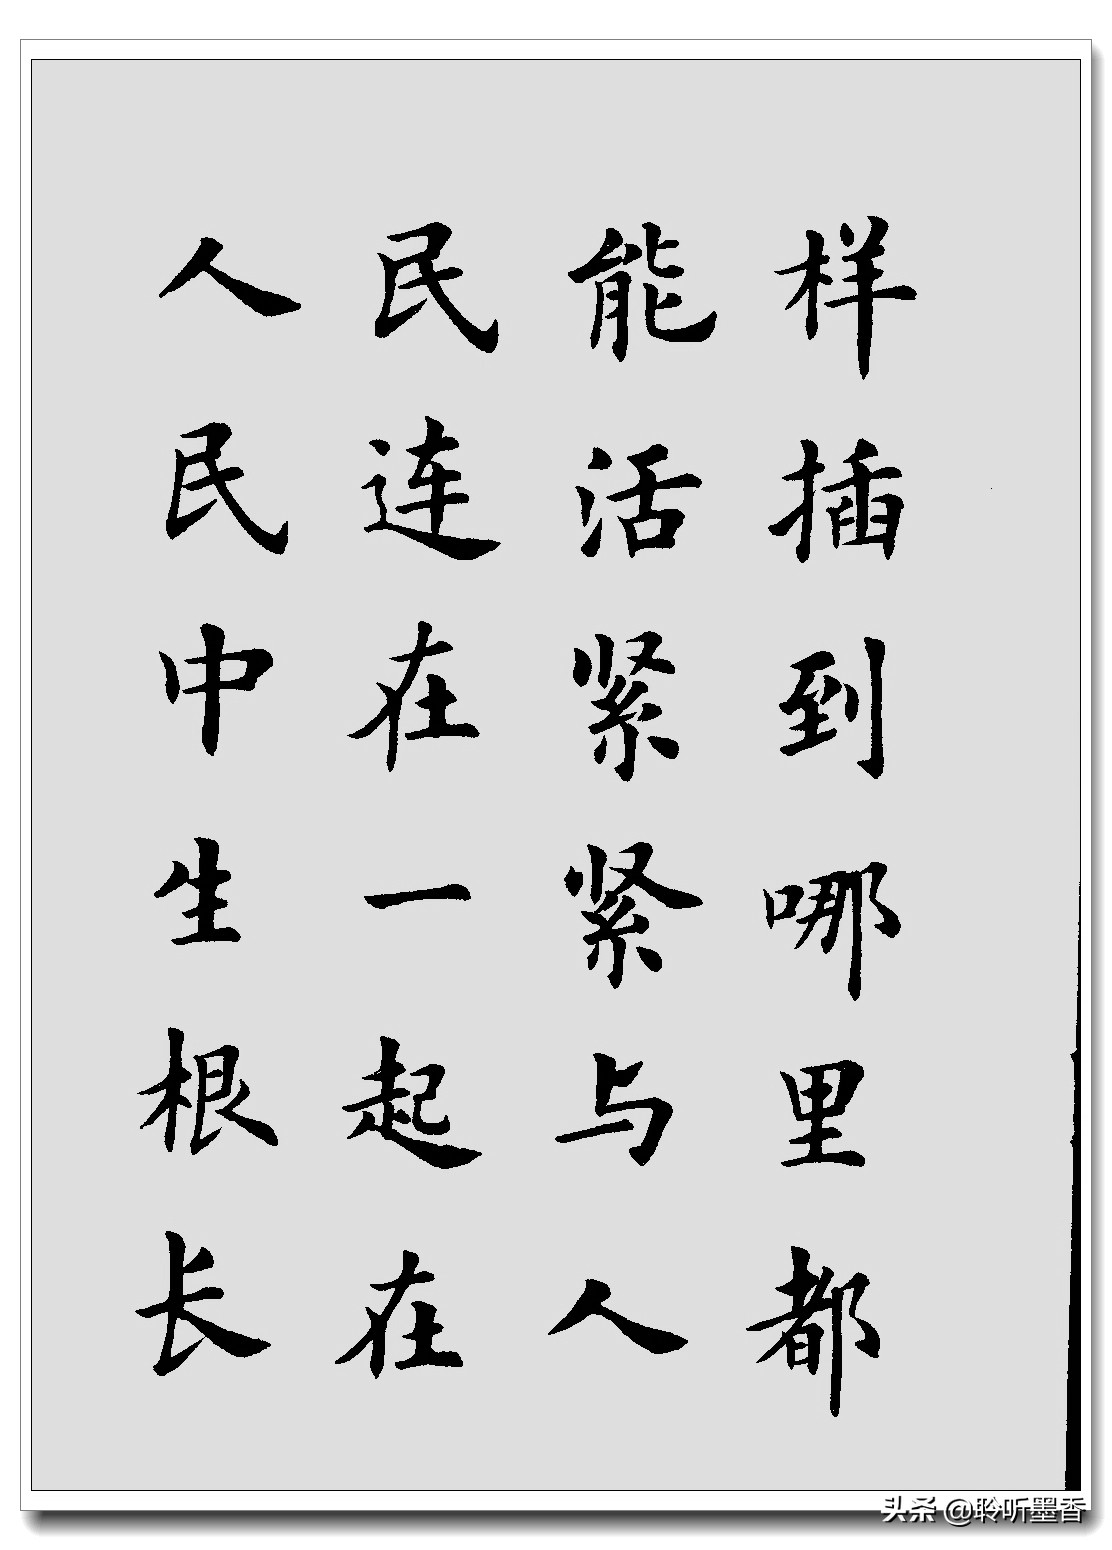 样插到哪里都
能活紧紧与人
民连在一起在
人民中生根长
头条 @聆听墨香